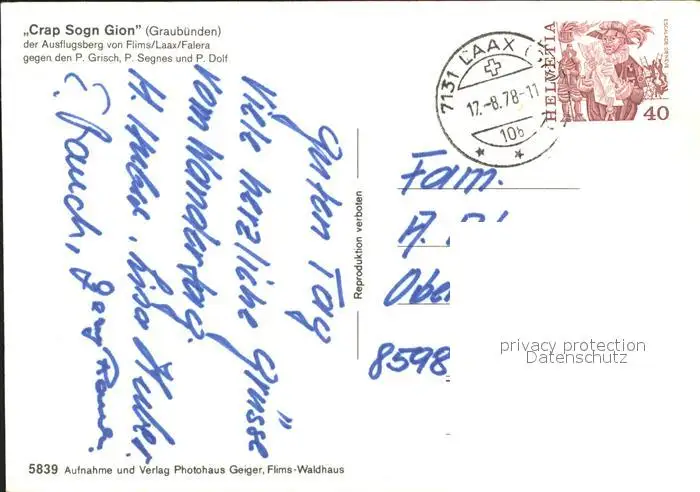 „Crap Sogn Gion" (Graubünden)
der Ausflugsberg von Flims/Laax/Falera
gegen den P. Grisch, P. Segnes und P. Dolf
guten Tag
Viele herzliche Grüsse
vom Wandertag.
H. Huber, Lisa Huber
E. Rauch,
Reproduktion verboten
7131 LAAX
17.-8.78-11
10b
HELVETIA
ESCALADE GENÈVE
40
Fam.
A.
Obe
8598
privacy protection
Datenschutz
5839 Aufnahme und Verlag Photohaus Geiger, Flims-Waldhaus